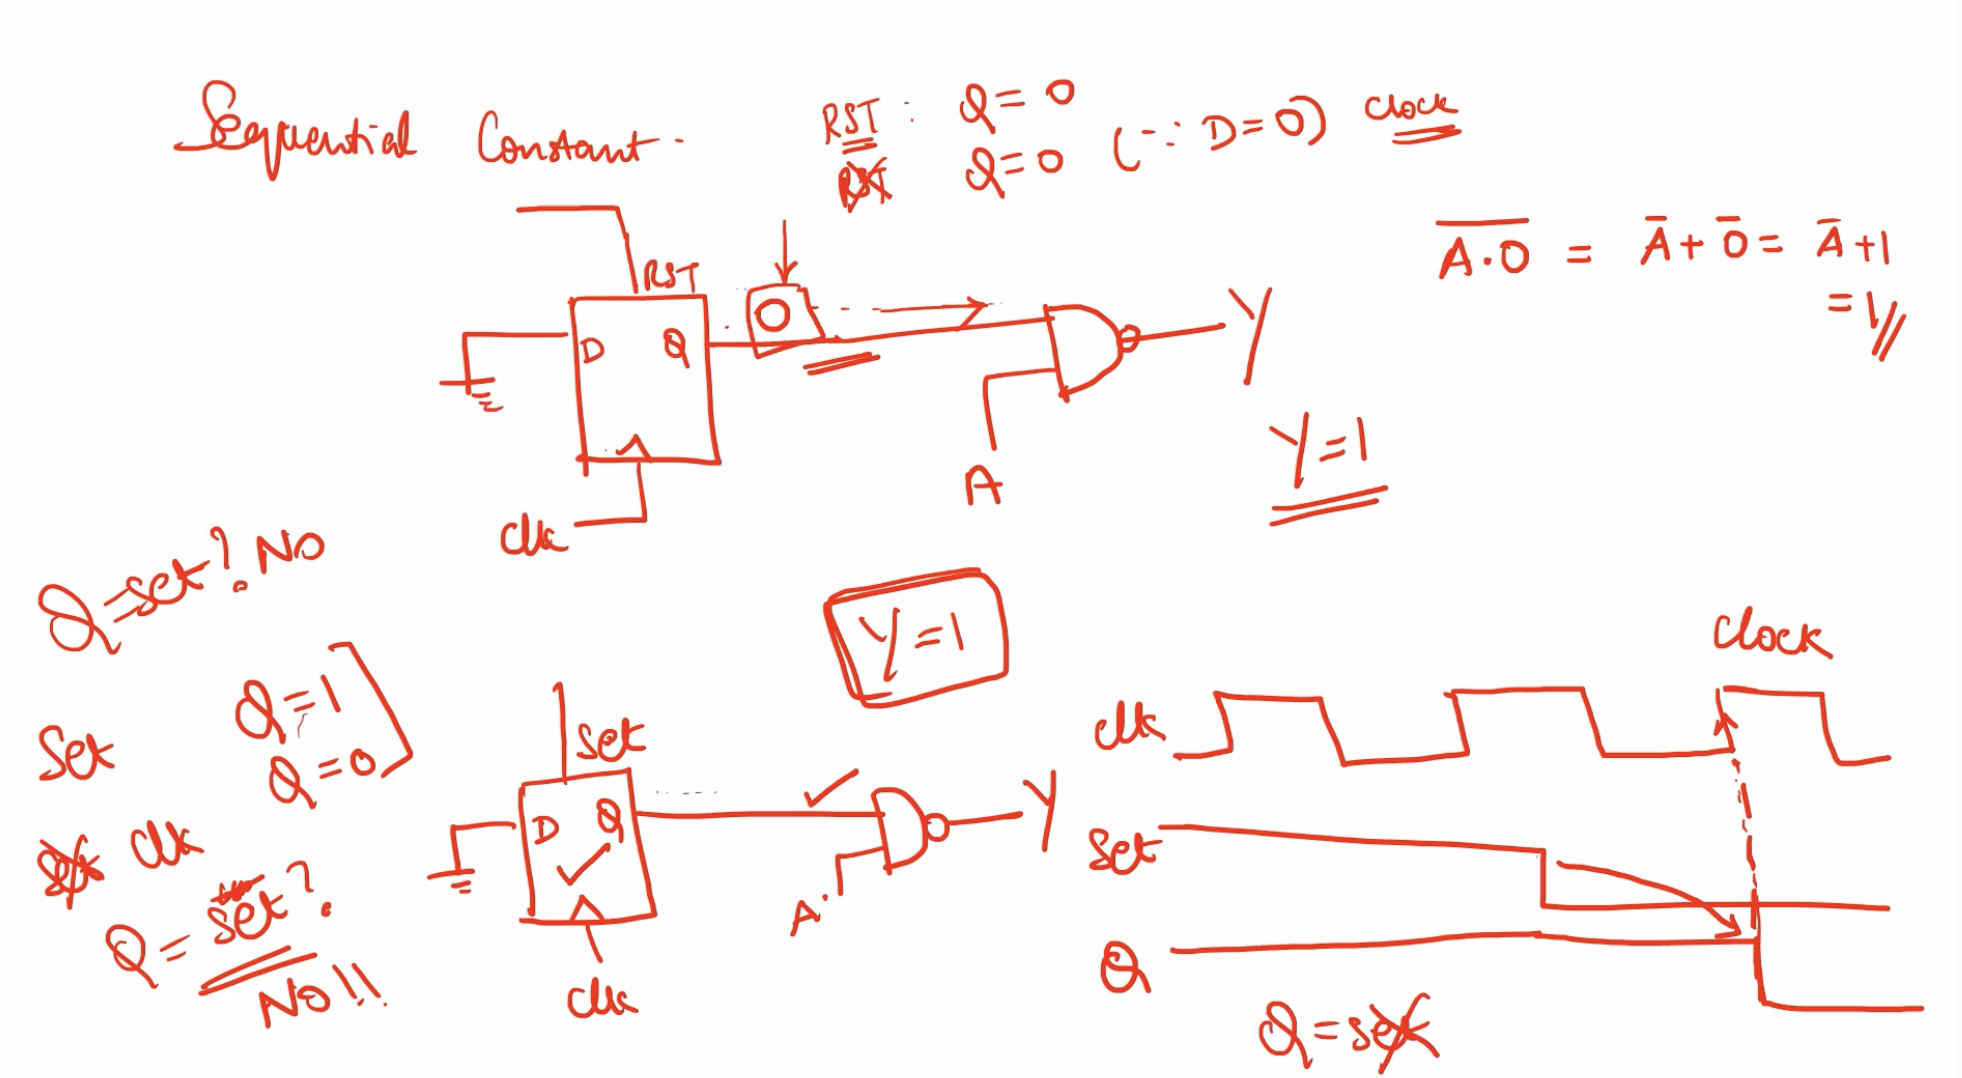 Sequential Constant
RST : Q = 0
RST Q = 0 (∵ D = 0) clock
RST
D Q
0
Y
A
clk
Y = 1
\overline{A·0} = Ā + 0̄ = Ā + 1
= 1
Q = set? NO
Y = 1
Set Q = 1
Q = 0
Set clk
Q = set?
NO!!
Set
D Q
Y
A
clk
Clock
clk
Set
Q
Q = set